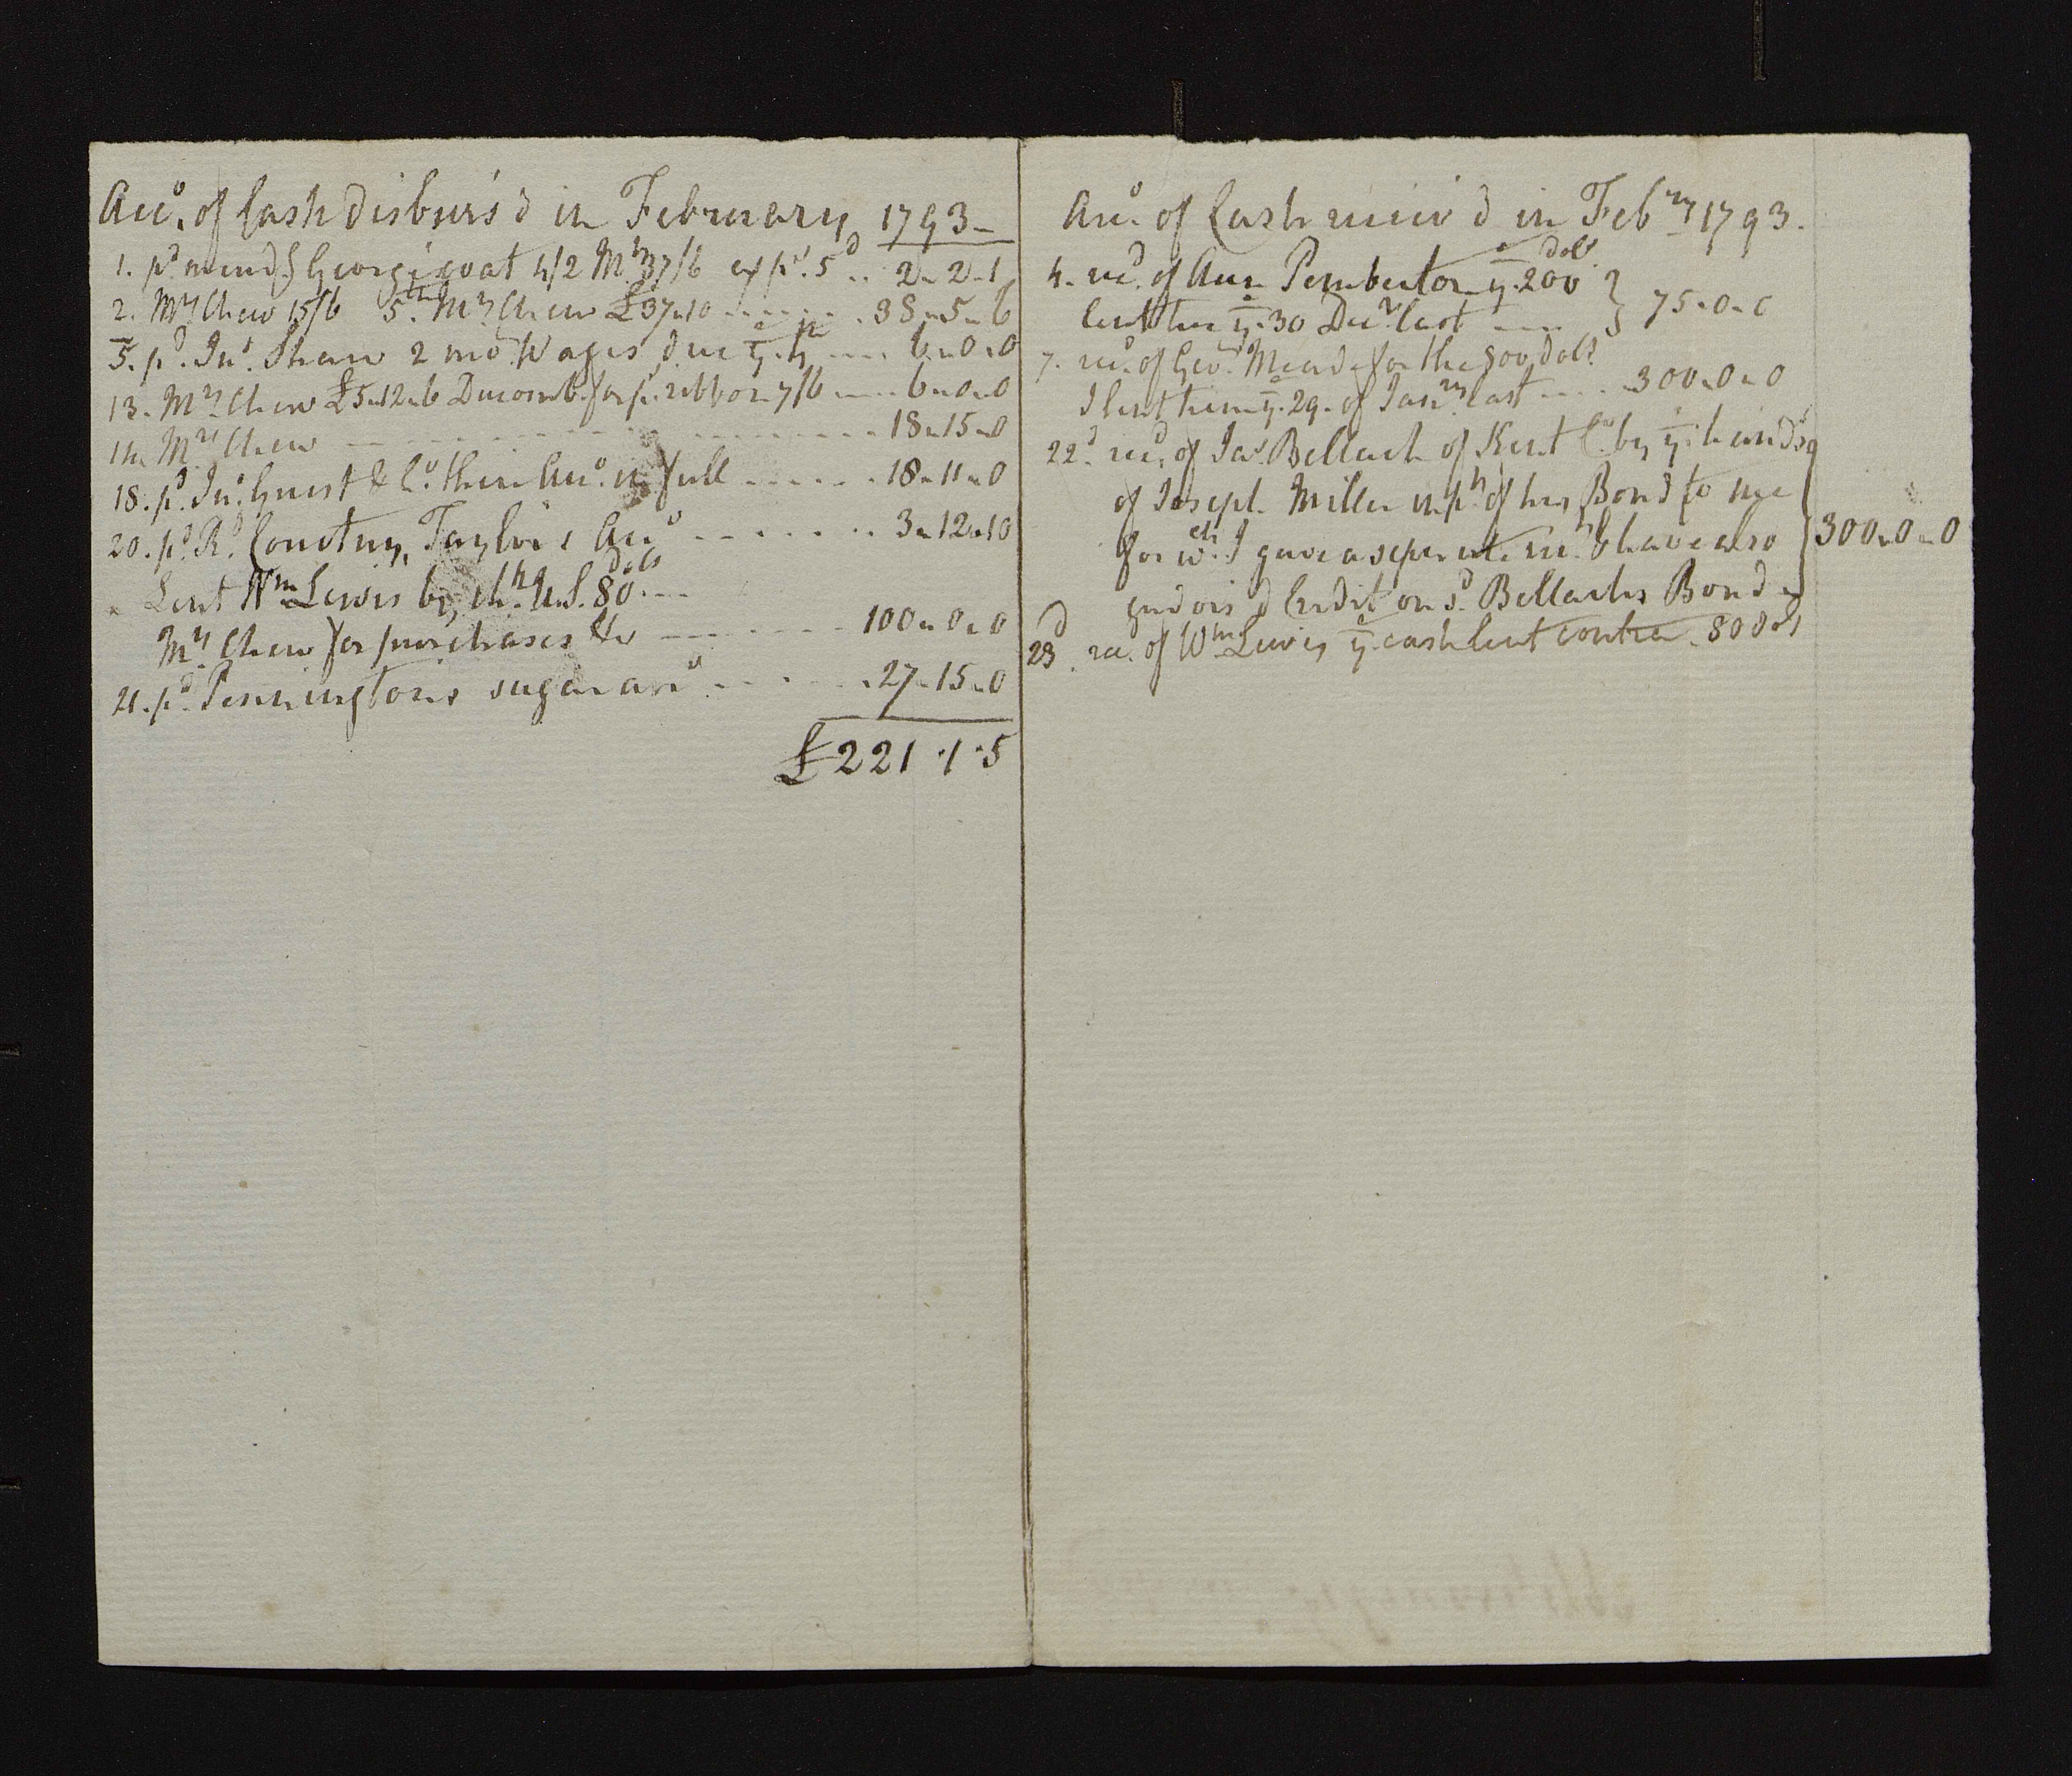 Accᵒ. of Cash disburs'd in February 1793
1. pᵈ. mendᵍ Georges coat 4/2 Mʳˢ 37/6 expˢ. 5ᵈ .. 2 - 2 - 1
2. Mʳˢ Chew 15/6 5ᵗʰ. Mʳˢ Chew £37-10 ------ 38 - 5 - 6
5. pᵈ. Jnᵒ. Shaw 2 mo. Wages due yᵉ. 4ᵗʰ ---- 6 - 0 - 0
13. Mʳˢ Chew £5-12-6 Ducomb for pˢ. ribbon 7/6 ---- 6 - 0 - 0
14. Mʳˢ Chew ---------- 18 - 15 - 0
18. pᵈ. Jnᵒ. Guest & Cᵒ. their Accᵒ. in full ----- 18 - 11 - 0
20. pᵈ. Rᵈ. Courtny, Taylor's Accᵒ ------- 3 - 12 - 10
Lent Wᵐ Lewis by ch. U.S. 80 dolˢ ---
Mʳˢ Chew for purchases &c ------ 100 - 0 - 0
21. pᵈ Pennington's sugar accᵒ ------ 27 - 15 - 0
£221 . 1 . 5
Accᵒ. of Cash receiv'd in Febʳʸ 1793.
4. recᵈ. of Ann Pemberton yᵉ. 200 dolˢ
lent her yᵉ. 30 Decʳ. last ---- 75 - 0 - 0
7. recᵈ. of Geoᵉ. Meade for the 800 dolˢ.
I lent him yᵉ. 29. of Janʳʸ last ---- 300 - 0 - 0
22ᵈ recᵈ. of Jaˢ. Bellach of Kent Cᵒ. by yᵉ. hands
of Joseph Miller in pᵗ. of his Bond to me
for wᶜʰ. I gave a seperate recᵗ. & have also
endors'd Credit on sᵈ. Bellachs Bond - 300 - 0 - 0
23ᵈ. recᵈ. of Wᵐ Lewis yᵉ cash lent contra . 80 dolˢ